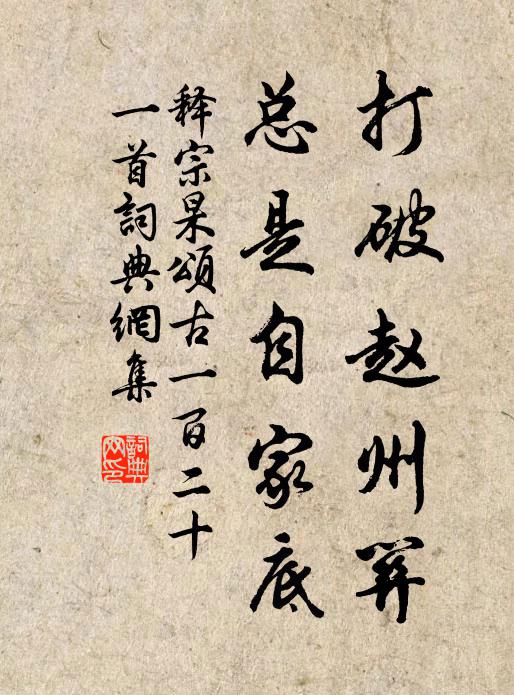 打破赵州关
总是自家底
释宗杲頌古一百二十
一首詞典網集
詞典
网印